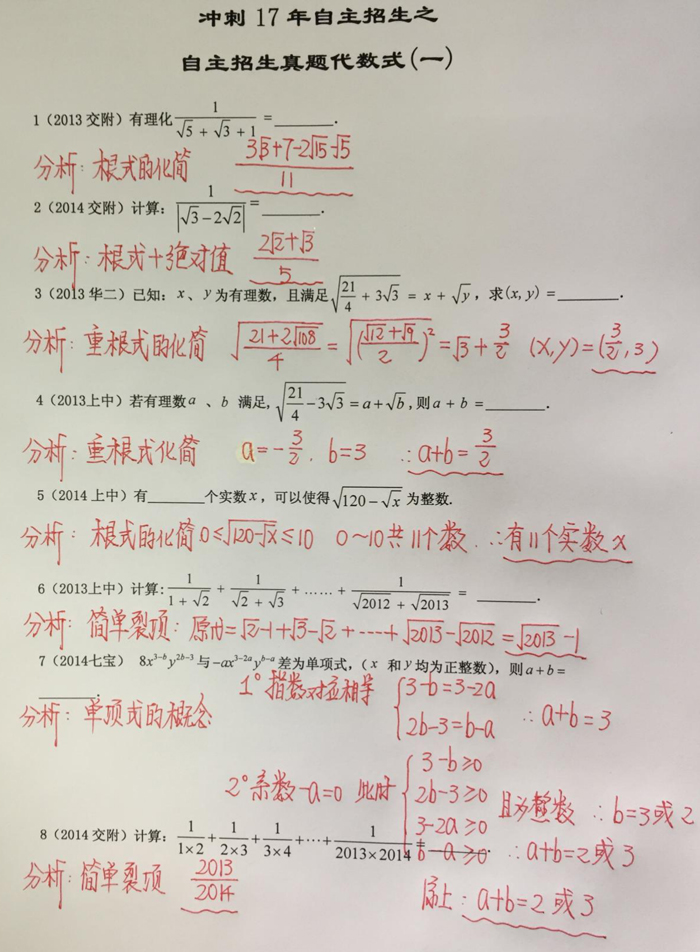 冲刺 17 年自主招生之
自主招生真题代数式(一)
1（2013 交附）有理化 1/(√5 + √3 + 1) = ______.
分析: 根式的化简 (3√3+7-2√15-√5)/11
2（2014 交附）计算: 1/|√3-2√2| = ______.
分析: 根式+绝对值 (2√2+√3)/5
3（2013 华二）已知: x、y 为有理数，且满足 √(21/4 + 3√3) = x + √y，求(x, y) = ______.
分析: 重根式的化简 √((21+2√108)/4) = √((√12+√9)/2)² = √3 + 3/2 (x,y)=(3/2,3)
4（2013上中）若有理数a 、b 满足, √(21/4 - 3√3) = a + √b ,则 a + b = ______.
分析: 重根式化简 a=-3/2. b=3 ∴a+b=3/2
5（2014 上中）有______个实数 x，可以使得 √(120-√x) 为整数.
分析: 根式的化简 0≤√(120-√x)≤10 0~10共11个数. ∴有11个实数x
6（2013上中）计算: 1/(1+√2) + 1/(√2+√3) + …… + 1/(√2012+√2013) = ______.
分析: 简单裂项: 原式=√2-1+√3-√2+----+√2013-√2012=√2013-1
7（2014七宝） 8x^(3-b)y^(2b-3) 与 -ax^(3-2a)y^(b-a) 差为单项式，（x 和 y 均为正整数），则 a+b=
______.
1° 指数对应相等 { 3-b=3-2a
2b-3=b-a ∴a+b=3
分析: 单项式的概念
2° 系数-a=0 此时 { 3-b≥0
2b-3≥0
3-2a≥0
b-a≥0 且为整数 ∴b=3或2
∴a+b=2或3
综上: a+b=2或3
8（2014 交附）计算: 1/(1×2) + 1/(2×3) + 1/(3×4) + ⋯ + 1/(2013×2014) = ______.
分析: 简单裂项 2013/2014